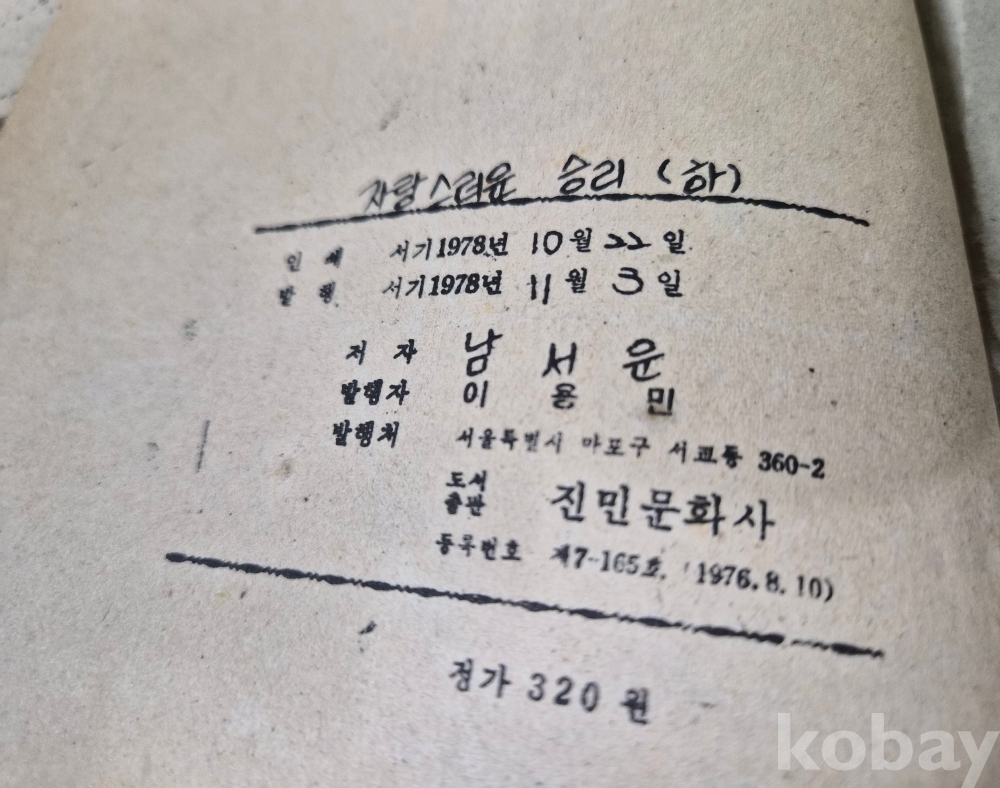 자랑스러운 승리 (하)
인쇄 서기1978년 10월 22일
발행 서기1978년 11월 3일
저자 남서윤
발행자 이용민
발행처 서울특별시 마포구 서교동 360-2
도서출판 진민문화사
등록번호 제7-165호, (1976.8.10)
정가 320원
kobay